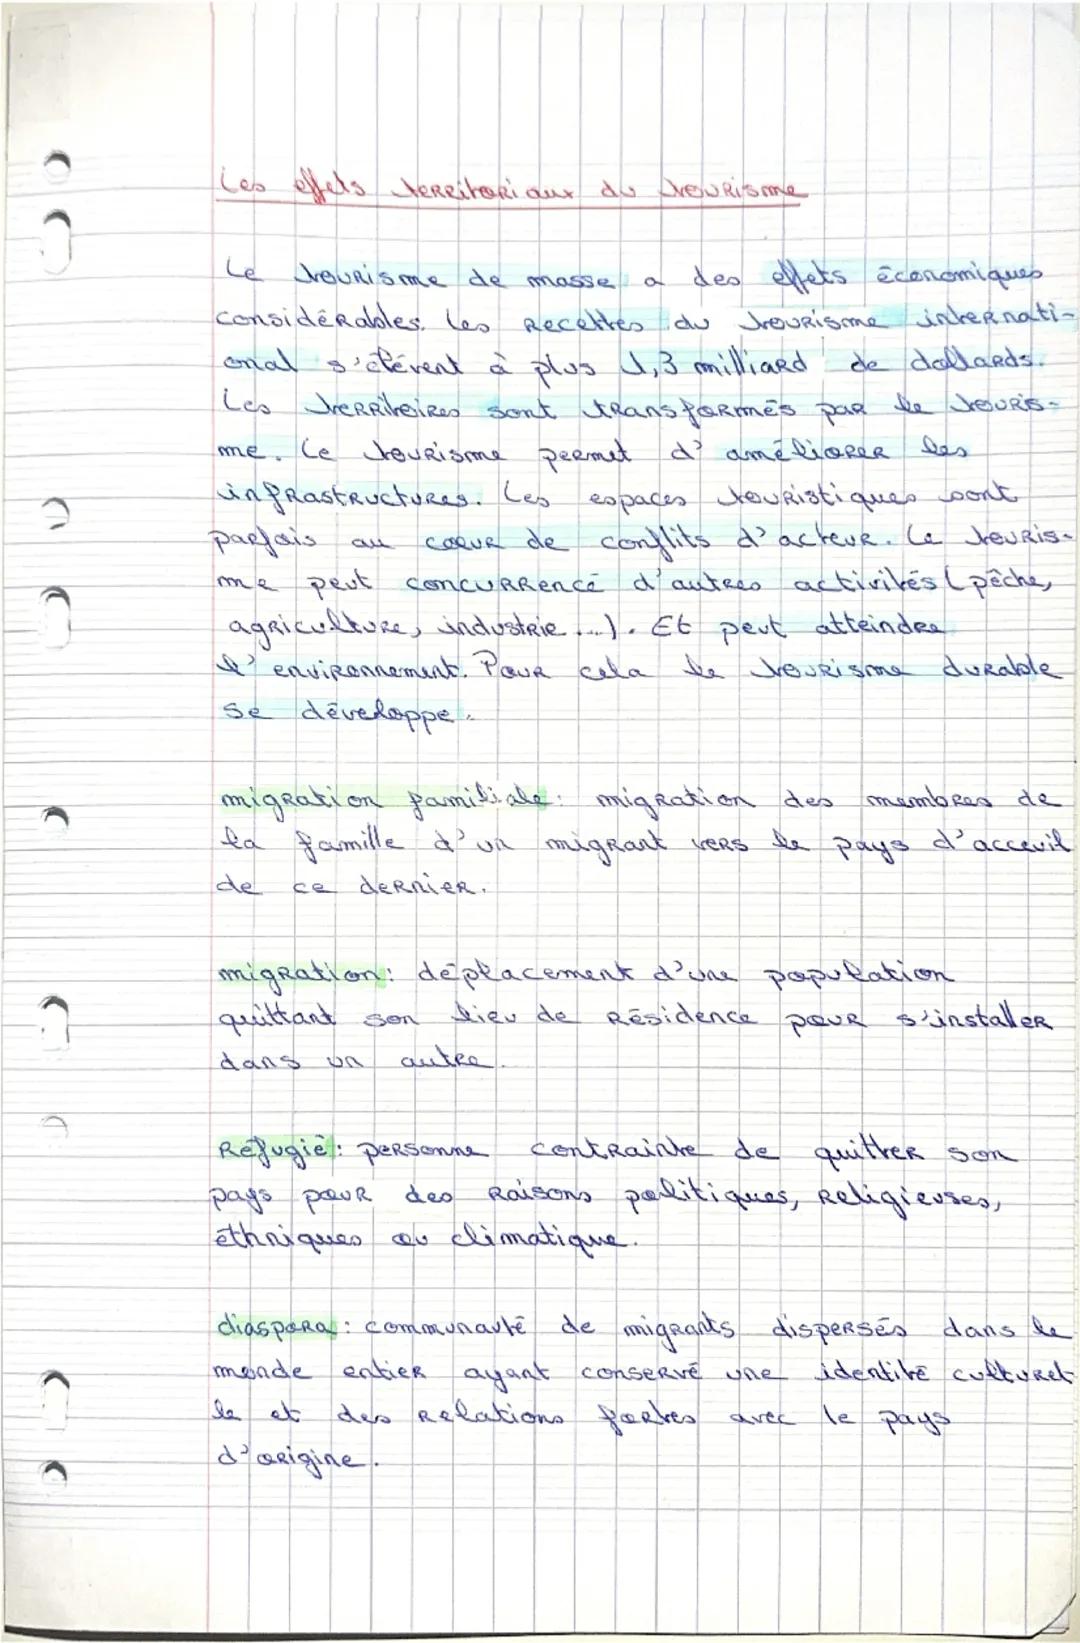 Les effets territoriaux du tourisme
Le tourisme de masse a des effets économiques
considérables. Les recettes du tourisme internati-
onal s'élévent à plus 1,3 milliard de dollards.
Les territoires sont transformés par le touris-
me. Le tourisme permet d'améliorer les
infrastructures. Les espaces touristiques sont
parfois au coeur de conflits d'acteur. Le touris-
me peut concurrencé d'autres activités (pêche,
agriculture, industrie ...). Et peut atteindre
l'environnement. Pour cela le tourisme durable
se développe.
migration familiale: migration des membres de
la famille d'un migrant vers le pays d'acceuil
de ce dernier.
migration: déplacement d'une population
quittant son lieu de résidence pour s'installer
dans un autre.
Réfugié: personne contrainte de quitter son
pays pour des raisons politiques, religieuses,
éthniques ou climatique.
diaspora: communauté de migrants dispersés dans le
monde entier ayant conservé une identité culturel-
le et des relations fortes avec le pays
d'origine.